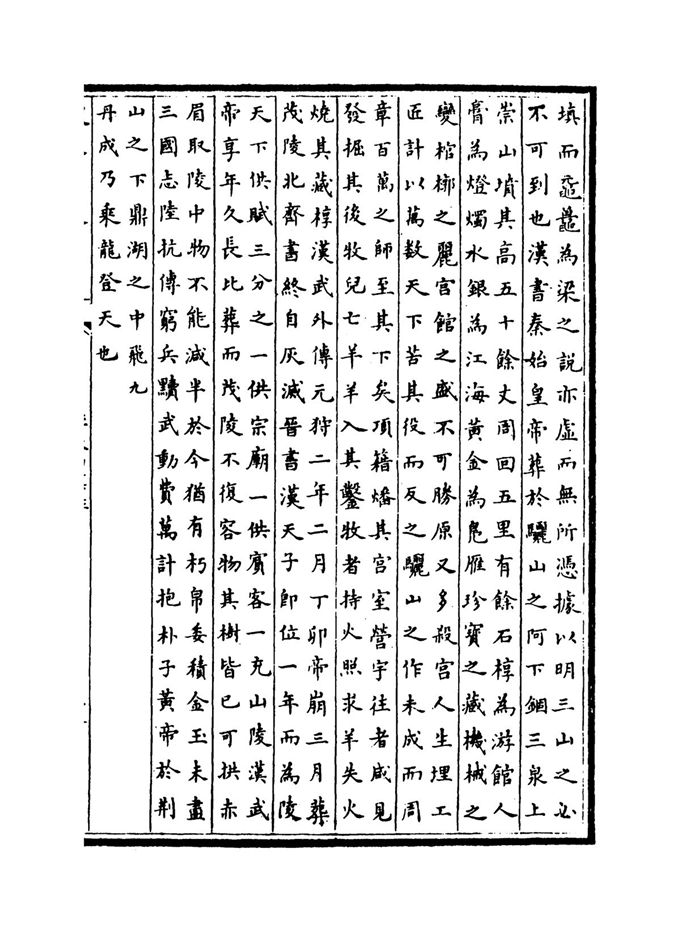 填而黿鼉為梁之說亦虛而無所憑據以明三山之必
不可到也漢書秦始皇帝葬於驪山之阿下錮三泉上
崇山墳其高五十餘丈周回五里有餘石椁為游館人
膏為燈燭水銀為江海黃金為鳬雁珍寶之藏機械之
變棺槨之麗宫館之盛不可勝原又多殺宫人生埋工
匠計以萬數天下苦其役而反之驪山之作未成而周
章百萬之師至其下矣項籍燔其宫室營宇往者咸見
發掘其後牧兒亡羊羊入其鑿牧者持火照求羊失火
燒其藏椁漢武外傳元狩二年二月丁卯帝崩三月葬
茂陵北齊書終自灰滅晉書漢天子即位一年而為陵
天下供賦三分之一供宗廟一供賓客一充山陵漢武
帝享年久長比葬而茂陵不復容物其樹皆已可拱赤
眉取陵中物不能減半於今猶有朽帛委積金玉未盡
三國志陸抗傳窮兵黷武動費萬計抱朴子黃帝於荆
山之下鼎湖之中飛九
丹成乃乘龍登天也